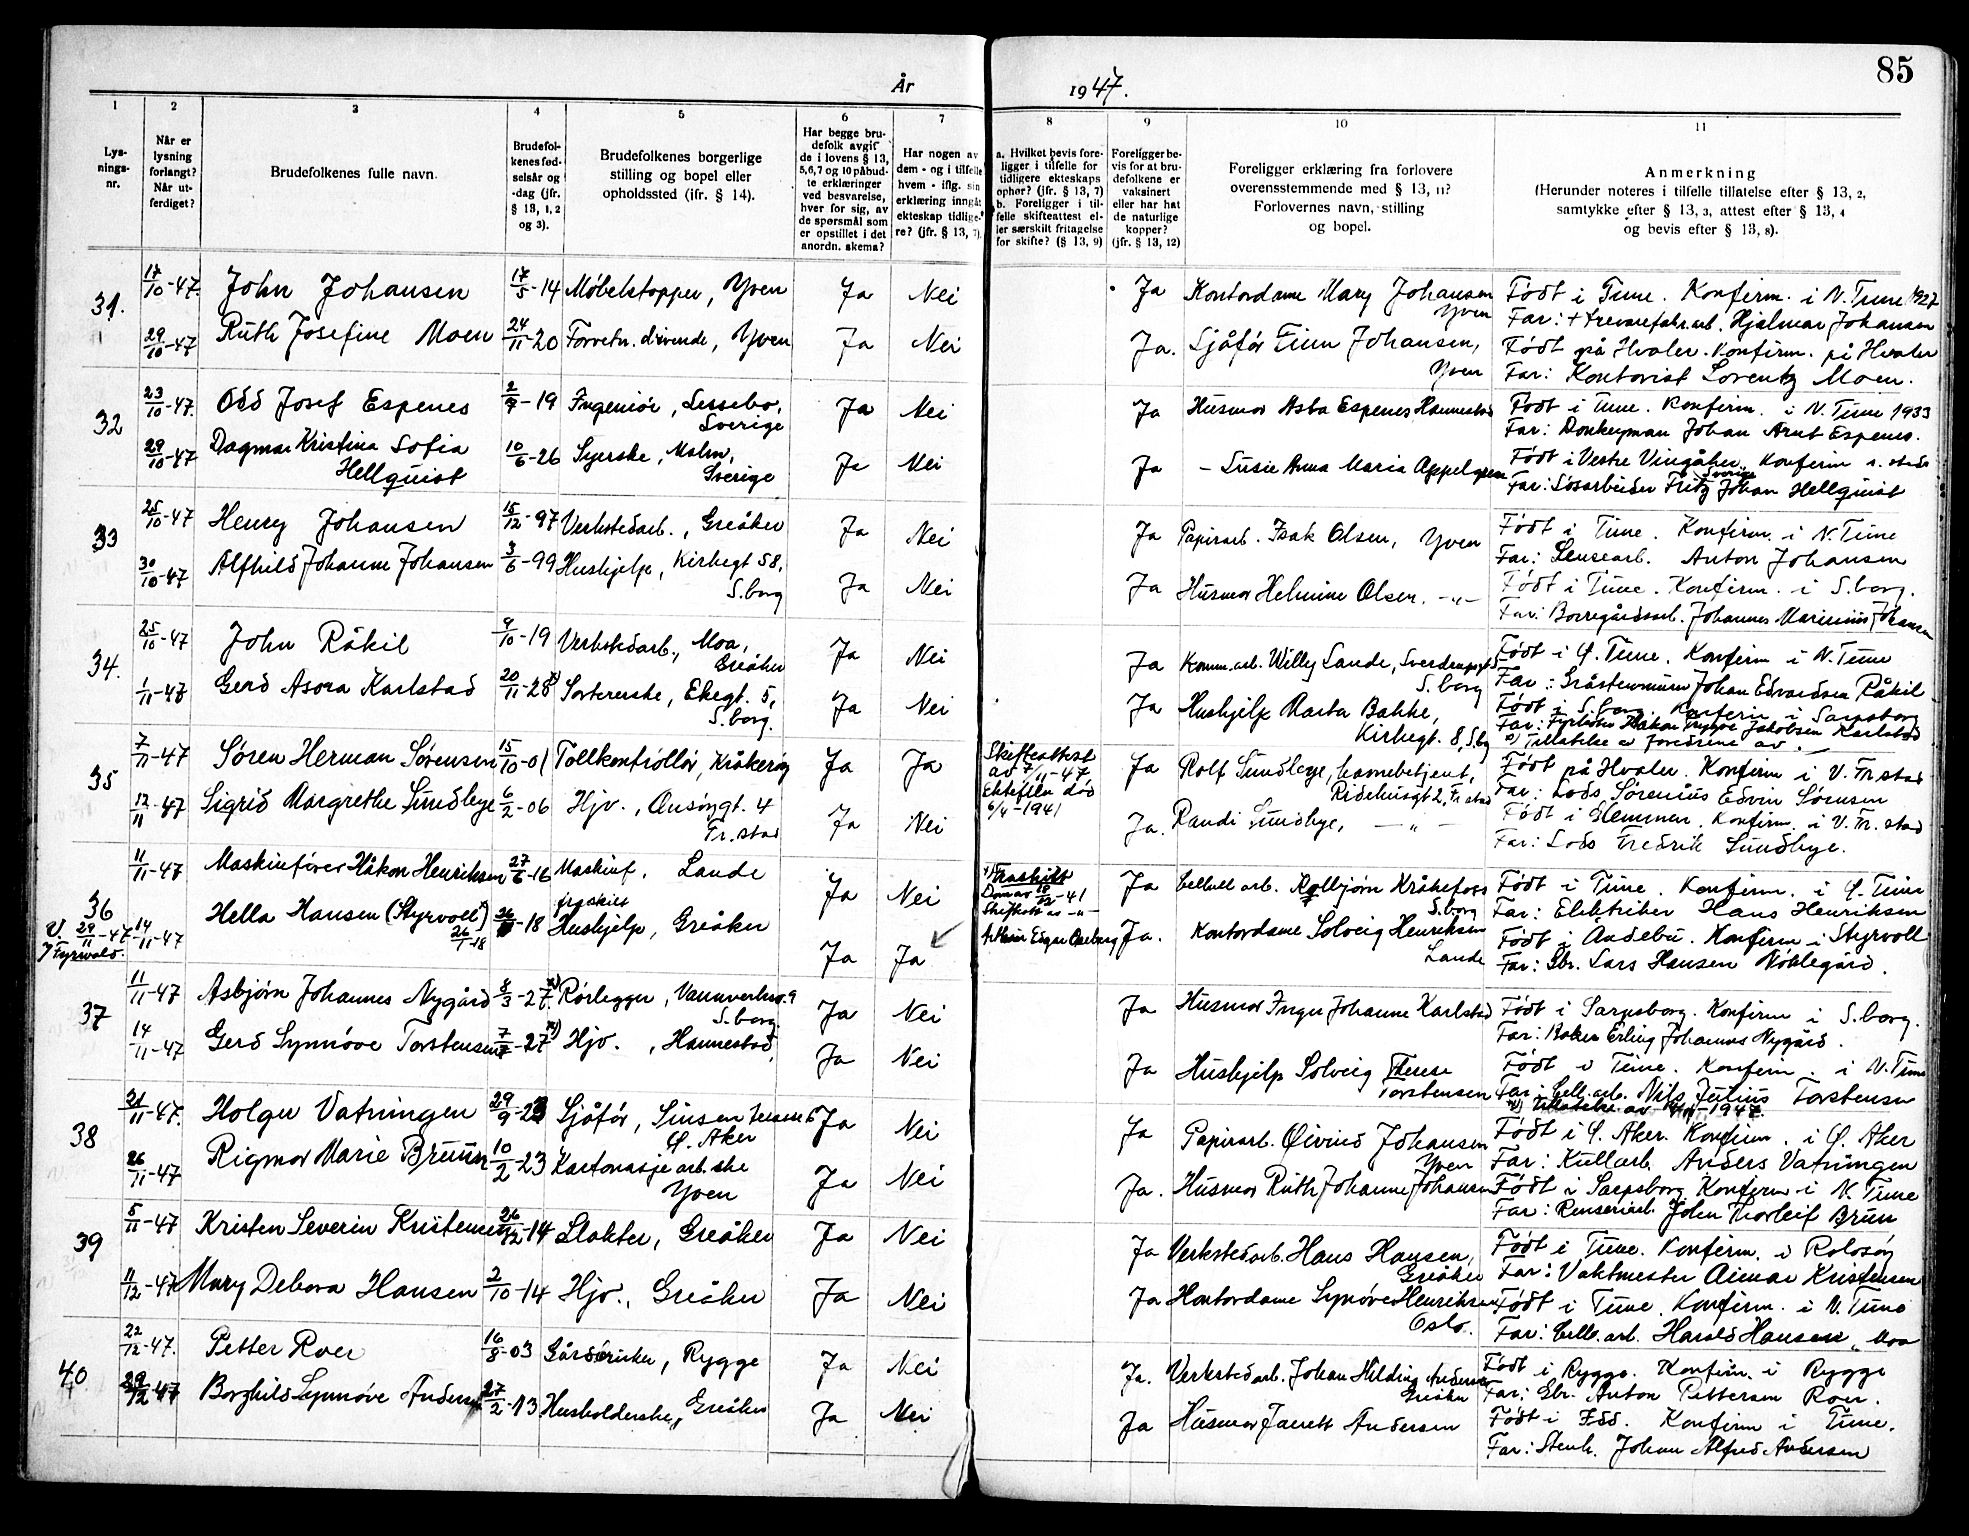 85
År 1947.
1 2 3 4 5 6 7 8 9 10 11
Lysnings-nr.
Når er lysning forlangt? Når utferdiget?
Brudefolkenes fulle navn.
Brudefolkenes fødselsår og -dag (jfr. § 13, 1, 2 og 3).
Brudefolkenes borgerlige stilling og bopel eller opholdssted (jfr. § 14).
Har begge brudefolk avgitt de i lovens § 13, 5, 6, 7 og 10 påbudte erklæringer ved besvarelse, hver for sig, av de spørsmål som er opstillet i det anordn. skema?
Har nogen av dem - og i tilfelle hvem - iflg. sin erklæring inngåt ekteskap tidligere? (jfr. § 13, 7).
a. Hvilket bevis foreligger i tilfelle for tidligere ekteskaps ophør? (jfr. § 13, 7) b. Foreligger i tilfelle skifteattest eller særskilt fritagelse for skifte? (§ 13, 9)
Foreligger bevis for at brudefolkene er vaksinert eller har hat de naturlige kopper? (jfr. § 13, 12)
Foreligger erklæring fra forlovere overensstemmende med § 13, 11? Forlovernes navn, stilling og bopel.
Anmerkning (Herunder noteres i tilfelle tillatelse efter § 13, 2, samtykke efter § 13, 3, attest efter § 13, 4 og bevis efter § 13, 8).
31. 17/10-47. John Johansen 17/5-14 Møbelstopper, Yven Ja Nei Ja Kontordame Mary Johansen Yven Født i Tune. Konfirm. i N. Tune 1927
Far: + trevarefabr.arb. Hjalmar Johansen
29/10-47 Ruth Josefine Moen 24/11-20 Forretn. drivende, Yven Ja Nei Ja. Sjåfør Finn Johansen, Yven Født på Hvaler. Konfirm. på Hvaler
Far: Kontorist Lorentz Moen.
32 23/10-47. Odd Josef Espenes 2/7-19 Ingeniør, Lessebo, Sverige Ja Nei Ja Husmor Asta Espenes Hannestad Født i Tune. Konfirm. i N. Tune 1933
Far: Donkeyman Johan Arnt Espenes.
29/10-47 Dagmar Kristina Sofia Hellquist 10/6-26 Syerske, Malm, Sverige Ja Nei Ja - Susie Anna Maria Appelgren Født i Vestre Vingåker, Sverige Konfirm s. steds
Far: Løsarbeider Fritz Johan Hellquist
33 25/10-47 Henry Johansen 15/12-97 Verkstedarb., Greåker Ja Nei Ja Papirarb. Isak Olsen, Yven Født i Tune. Konfirm. i N. Tune
Far: Lensearb. Anton Johansen
30/10-47 Alfhild Johanne Johansen 3/6-99 Hushjelp, Kirkegt 58, S.borg Ja Nei Ja Husmor Helmine Olsen. -"- Født i Tune. Konfirm. i S.borg.
Far: Borregårdsarb. Johannes Marinius Johansen
34. 25/10-47 John Råkil 9/10-19 Verkstedarb., Moa, Greåker Ja Nei Ja Komm.arb. Willy Lande, Sverdrupsgt 5 S.borg Født i Ø. Tune. Konfirm i N. Tune
Far: Gråstensmurer Johan Edvardsen Råkil
1/11-47 Gerd Asora Karlstad 20/11-28 x) Sortererske, Ekegt. 5, S.borg. Ja Nei Ja Hushjelp Marta Bakke, Kirkegt. 8, S.bg Født i S.borg. Konfirm i Sarpsborg
Far: Fyrbøter Håkon Trygve Jakobsen Karlstad
x) Tillatelse av foreldrene av -
35 7/11-47 Søren Herman Sørensen 15/10-01 Tollkontrollør, Kråkerøy Ja Ja Skifteattest av 7/11-47, Ektefelle død 6/4-1941 Ja Rolf Sundbye, havnebetjent, Ridehusgt 2, Fr.stad Født på Hvaler. Konfirm i V. Fr.stad
Far: Lods Sørenius Edvin Sørensen
12/11-47 Sigrid Margrethe Sundbye 6/2-06 Hjv., Onsøygt. 4 Fr.stad Ja Nei Ja. Randi Sundbye, -"- Født i Glemmen. Konfirm. i V. Fr.stad
Far: Lods Fredrik Sundbye.
36 11/11-47 Maskinfører Håkon Henriksen 27/6-16 Maskinf. Lande Ja Nei Fraskilt Dom av -41 Skifteatt. av -"- Ja Cellull arb. Kolbjørn Kråkefoss S.borg Født i Tune. Konfirm. i Ø. Tune
Far: Elektriker Hans Henriksen
V. 29/11-47 14/11-47 Hella Hansen (Styrvoll x) 26/1-18 26/1-18 fraskilt Hushjelp, Greåker Ja Ja Ja. Kontordame Solveig Henriksen Lande Født i Andebu. Konfirm i Styrvoll
Far: Gbr. Lars Hansen Nøklegård.
37 11/11-47 Asbjørn Johannes Nygård 8/3-27 x) Rørlegger, Vannverksv. 9 S.borg Ja Nei Ja Husmor Inger Johanne Karlstad Født i Sarpsborg. Konfirm i S.borg.
Far: Baker Erling Johannes Nygård.
14/11-47 Gerd Synnøve Torstensen 7/7-27 x) Hjv., Hannestad Ja Nei Ja Hushjelp Solveig Therese Torstensen Født i Tune. Konfirm. i N. Tune
Far: Cell. arb. Nils Julius Torstensen
x) Tillatelse av -1947.
38 21/11-47. Holger Vatvingen 29/9-23 Sjåfør, Sinsen Terrasse 6 Ø. Aker Ja Nei Ja Papirarb. Øivind Johansen Yven Født i Ø. Aker. Konfirm. i Ø. Aker
Far: Kullarb. Anders Vatvingen
26/11-47 Rigmor Marie Bruun 10/2-23 Kartonasjearb.ske Yven Ja Nei Ja. Husmor Ruth Johanne Johansen Født i Sarpsborg. Konfirm i N. Tune
Far: Renseriarb. John Thorleif Brun
39 5/11-47 Kristen Severin Kristensen 26/12-14 Slakter, Greåker Ja Nei Ja Verkstedarb. Hans Hansen, Greåker Født i Tune. Konfirm. i Rolvsøy
Far: Vaktmester Aimar Kristensen
11/12-47 Mary Debora Hansen 2/10-14 Hjv., Greåker Ja Nei Ja Kontordame Synøve Henriksen Oslo. Født i Tune. Konfirm. i N. Tune
Far: Cell. arb. Harald Hansen, Moa
40 22/12-47. Petter Roer 16/8-03 Gårdbruker, Rygge Ja Nei Ja. Verkstedarb. Johan Hilding Andersen Greåker Født i Rygge. Konfirm. i Rygge
Far: Gbr. Anton Pettersen Roer.
29/12-47 Borghild Synnøve Andersen 27/2-13 Husholderske, Greåker Ja Nei Ja Husmor Janett Andersen Født i Idd. Konfirm i Tune.
Far: Stenh. Johan Alfred Andersen